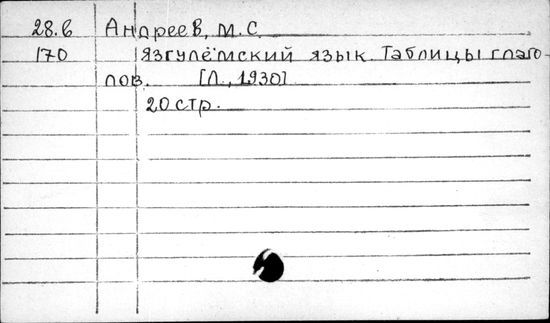 28.6 Андреев, М.С.
170 Язгулёмский язык. Таблицы глаго-
лов. [Л., 1930]
20 стр.